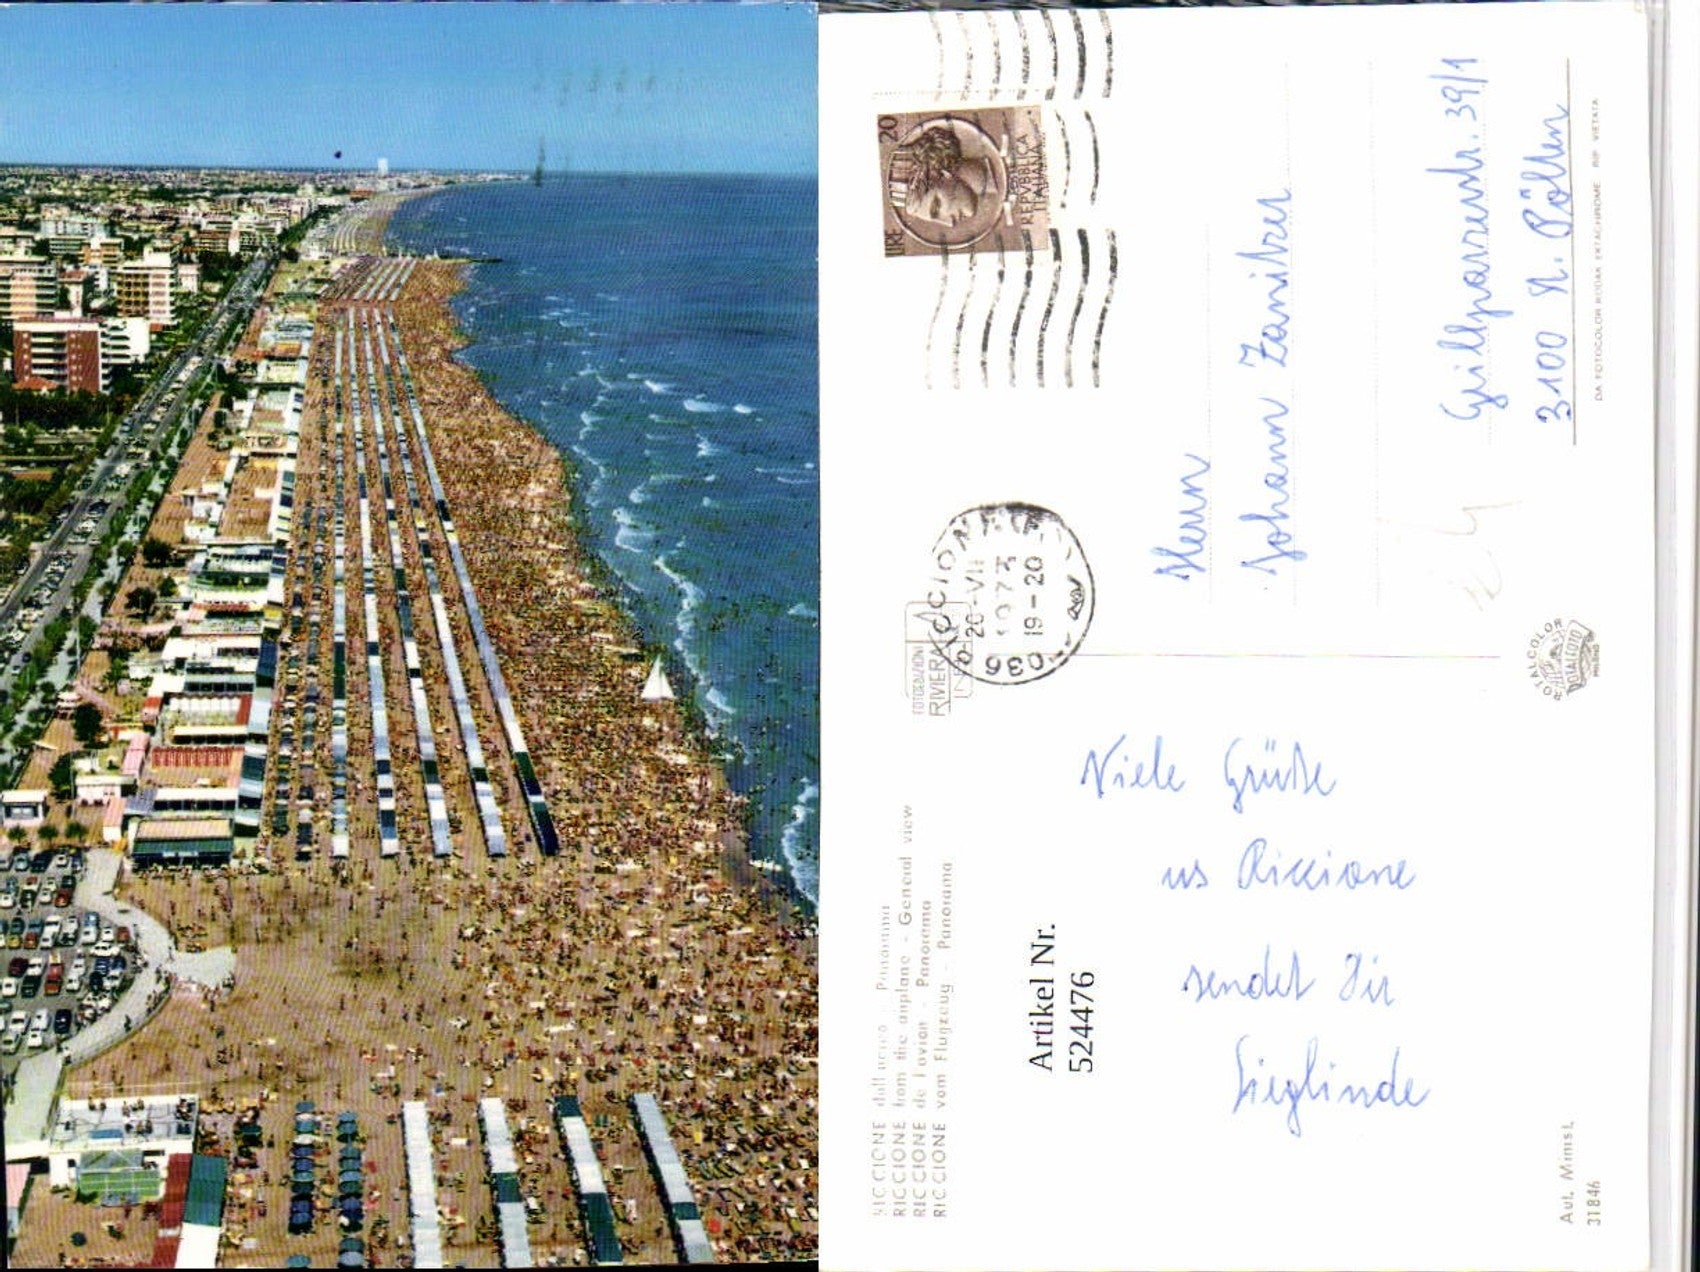 RICCIONE dall'aereo - Panorama
RICCIONE from the airplane - General view
RICCIONE de l'avion - Panorama
RICCIONE vom Flugzeug - Panorama
FOTOEDIZIONI
RIVIERA
Artikel Nr.
524476
Viele Grüße
aus Riccione
sendet Dir
Sieglinde
Aut. Minist.
31846
ROTALCOLOR
ROTALFOTO
MILANO
LIRE 20
REPVBBLICA
ITALIANA
RICCIONE
20-VII
1973
19-20
036
Herrn
Johann Zaniker
Grillparzerstr. 39/1
3100 St. Pölten
DA FOTOCOLOR KODAK EKTACHROME RIP. VIETATA